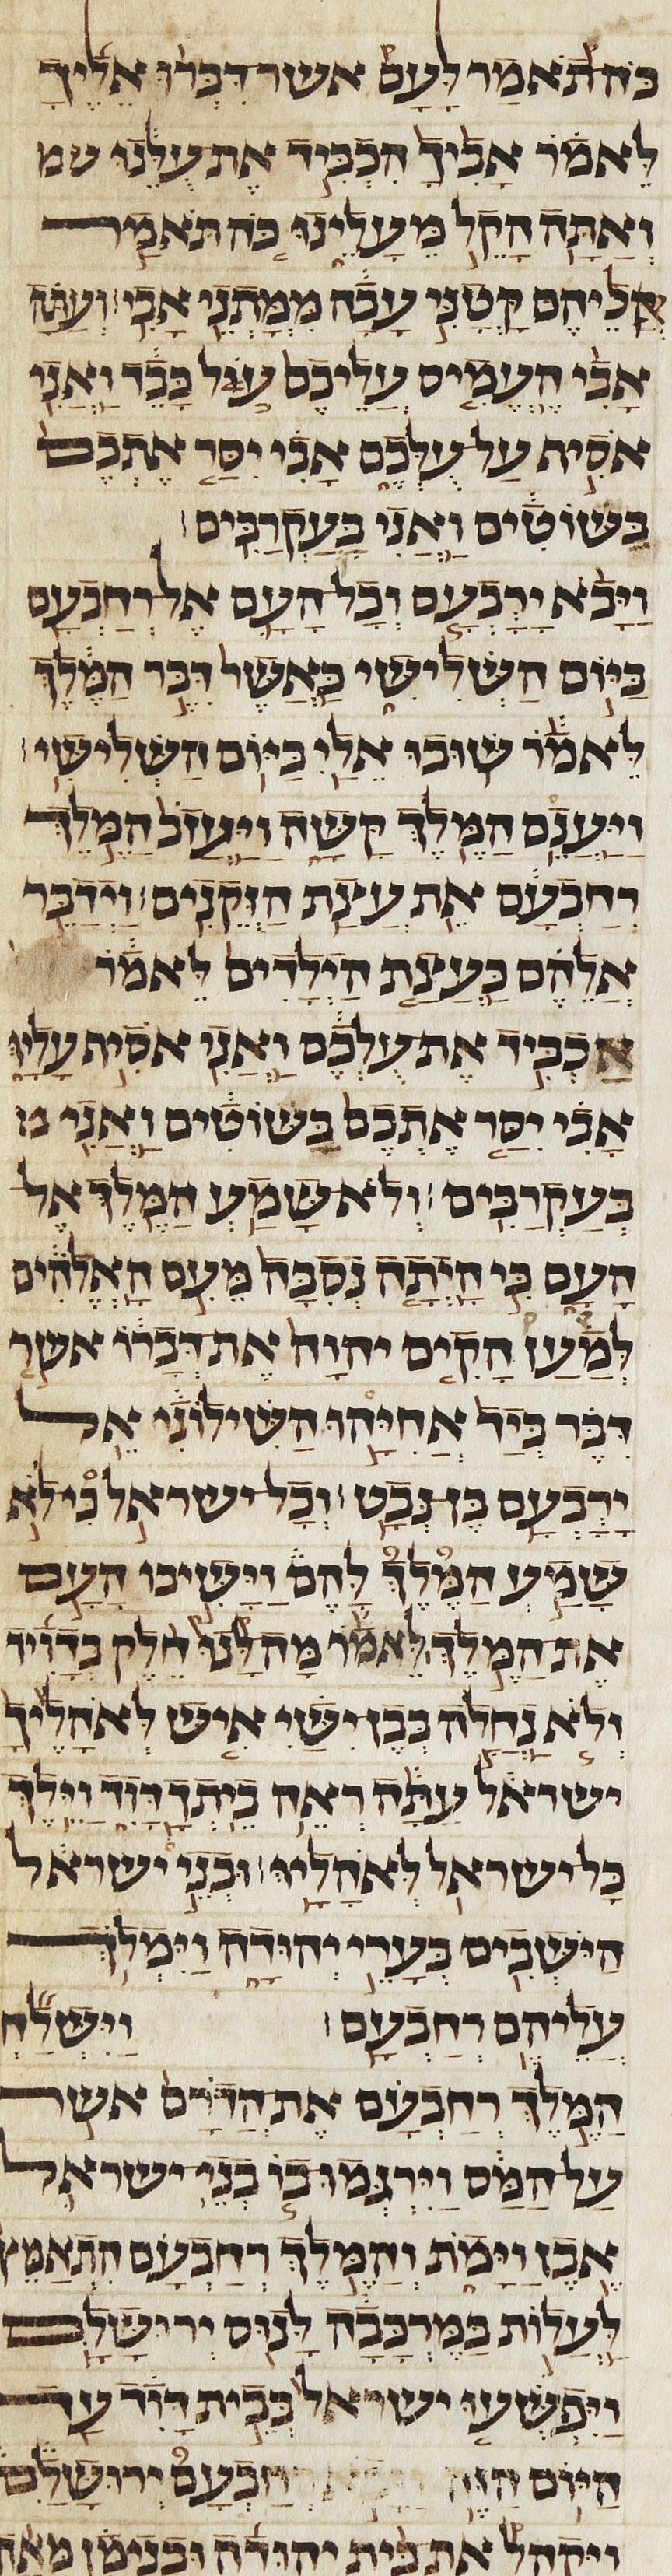 כה תאמר לעם אשר דברו אליך
לאמר אביך הכביד את עלנו
ואתה הקל מעלינו כה תאמר
אליהם קטני עבה ממתני אבי׃ ועתה
אבי העמיס עליכם על כבד ואני
אסיף על עלכם אבי יסר אתכם
בשוטים ואני בעקרבים׃
ויבא ירבעם וכל העם אל רחבעם
ביום השלישי כאשר דבר המלך
לאמר שובו אלי ביום השלישי׃
ויענם המלך קשה ויעזב המלך
רחבעם את עצת הזקנים׃ וידבר
אלהם כעצת הילדים לאמר
אכביד את עלכם ואני אסיף עליו
אבי יסר אתכם בשוטים ואני
בעקרבים׃ ולא שמע המלך אל
העם כי היתה נסבה מעם האלהים
למען הקים יהוה את דברו אשר
דבר ביד אחיהו השילוני אל
ירבעם בן נבט׃ וכל ישראל כי לא
שמע המלך להם וישיבו העם
את המלך לאמר מה לנו חלק בדויד
ולא נחלה בבן ישי איש לאהליך
ישראל עתה ראה ביתך דויד וילך
כל ישראל לאהליו׃ ובני ישראל
הישבים בערי יהודה וימלך
עליהם רחבעם׃ וישלח
המלך רחבעם את הדרם אשר
על המס וירגמו בו בני ישראל
אבן וימת והמלך רחבעם התאמץ
לעלות במרכבה לנוס ירושלם
ויפשעו ישראל בבית דויד עד
היום הזה רחבעם ירושלם
ויקהל את בית יהודה ובנימן מאה